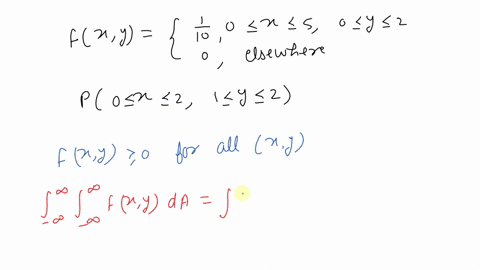 f(x,y) = { 1/10, 0 ≤ x ≤ 5, 0 ≤ y ≤ 2
0, elsewhere
P(0≤x≤2, 1≤y≤2)
f(x,y) ≥ 0 for all (x,y)
∫_{-∞}^{∞} ∫_{-∞}^{∞} f(x,y) dA = ∫